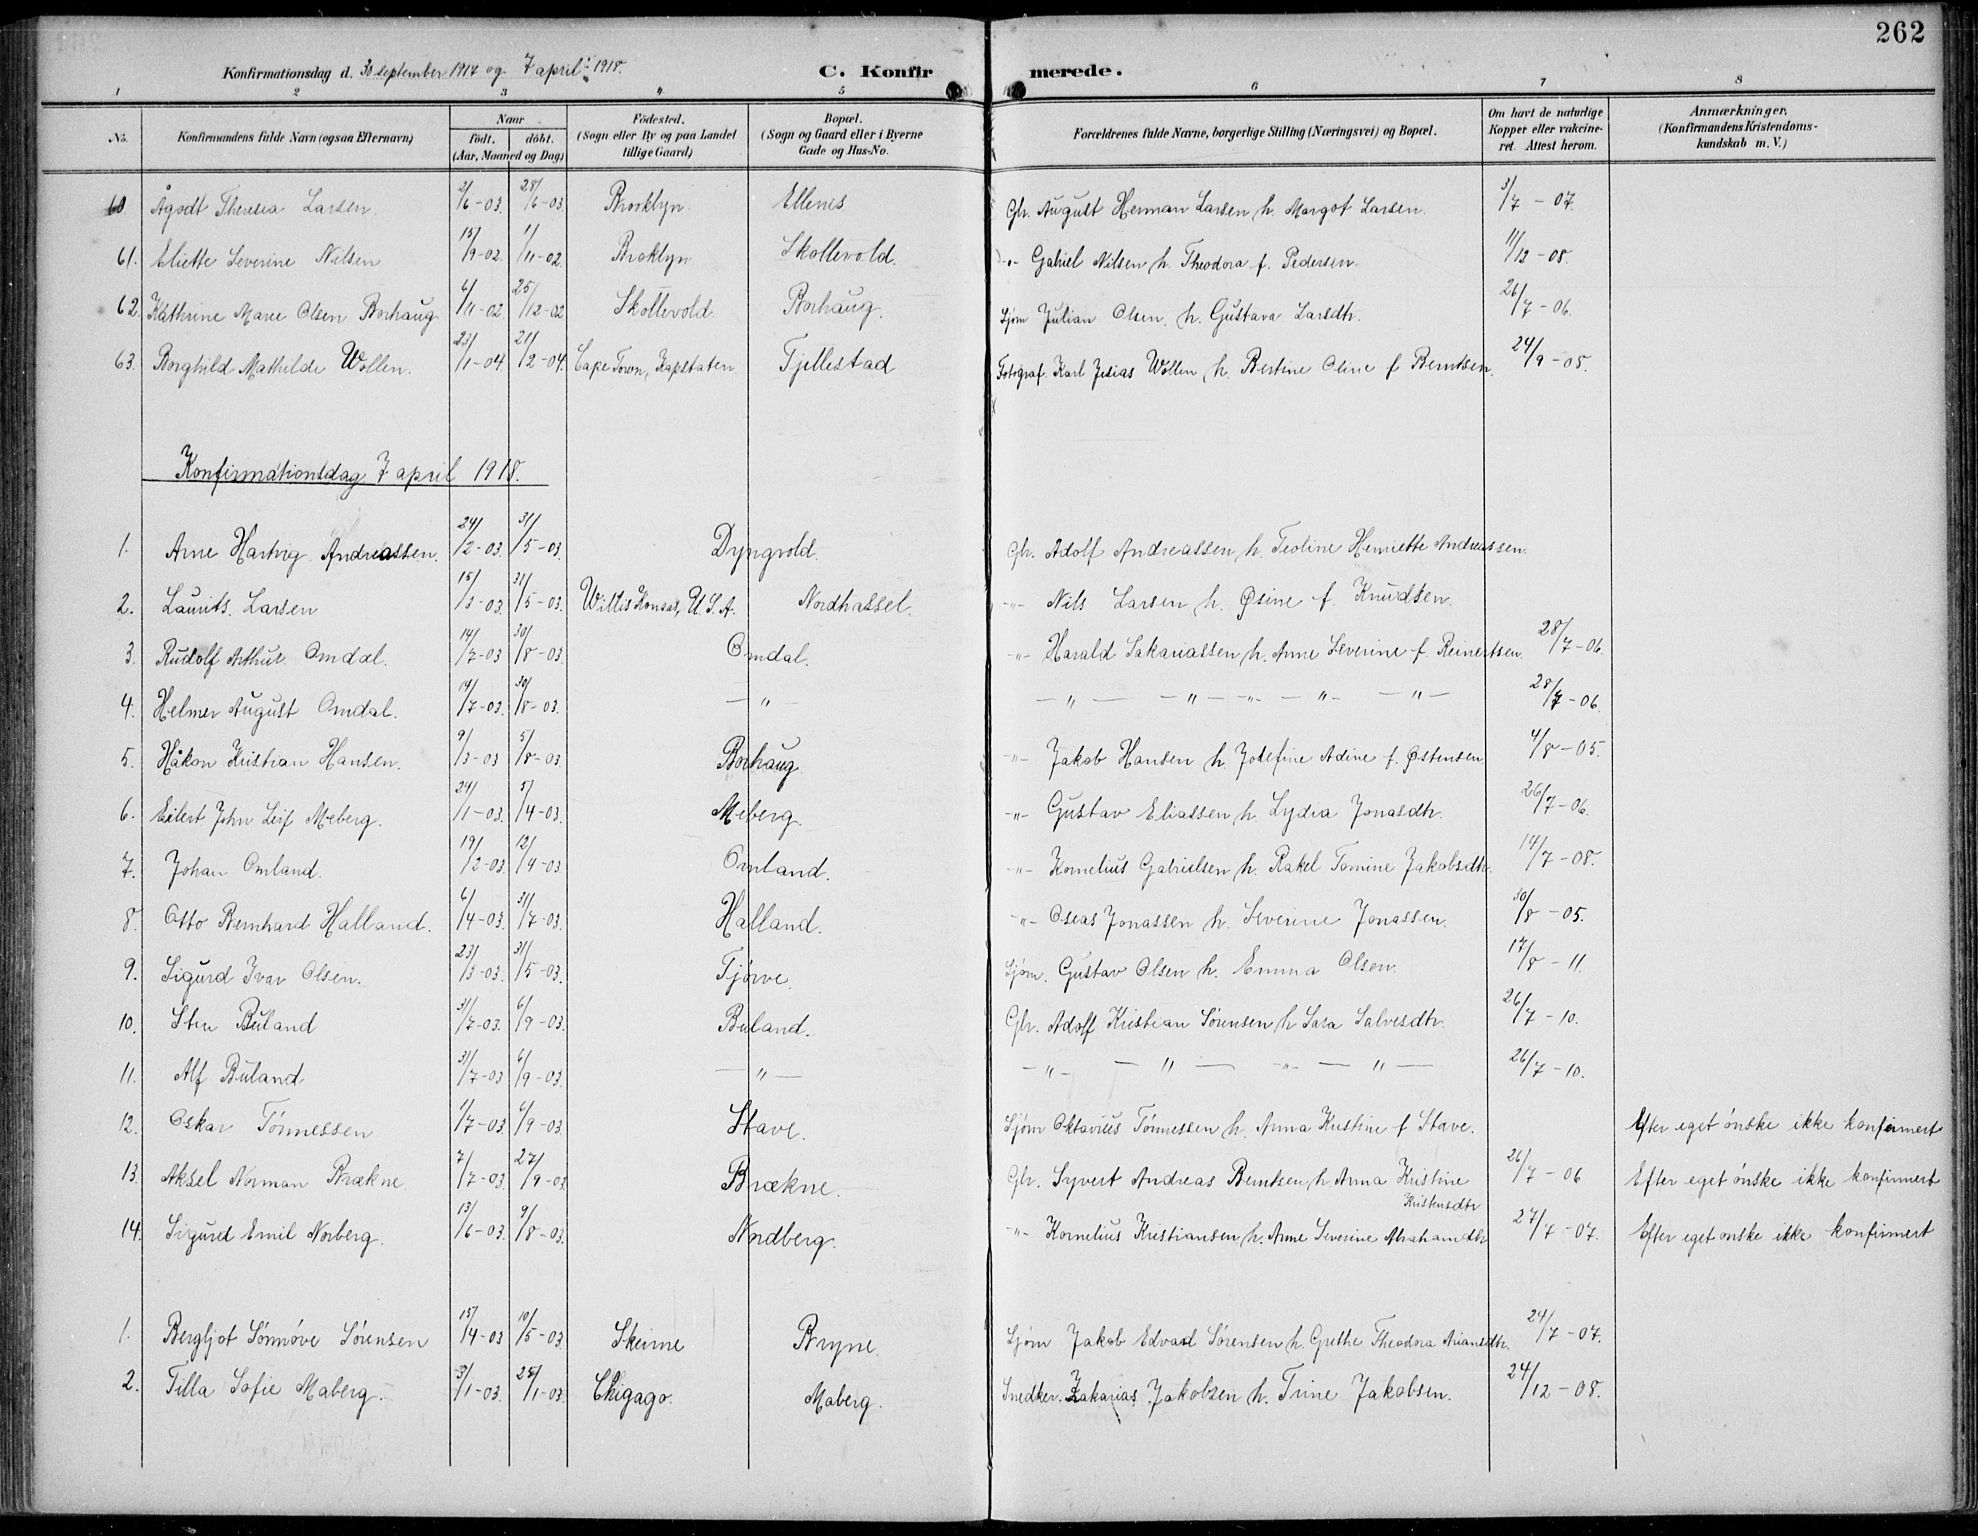 262
Konfirmationsdag d. 30 september 1917 og 7 april 1918. C. Konfirmerede.
1 2 3 4 5 6 7 8
No. Konfirmandens fulde Navn (ogsaa Efternavn) Naar født. døbt. (Aar, Maaned og Dag) Fødested. (Sogn eller By og paa Landet tillige Gaard) Bopæl. (Sogn og Gaard eller i Byerne Gade og Hus-No. Forældrenes fulde Navne, borgerlige Stilling (Næringsvei) og Bopæl. Om havt de naturlige Kopper eller vakcineret. Attest herom. Anmærkninger. (Konfirmandens Kristendomskundskab m. V.)
60 Ågodt Theresia Larsen 2/6-03 28/6-03 Brooklyn Ellenes Gbr. August Herman Larsen h. Margot Larsen. 3/7-07.
61. Eliette Severine Nilsen 15/9-02. 1/11-02 Broklyn Skollevold. -"- Gabiel Nilsen h. Theodora f. Pedersen. 11/12-08.
62. Kathrine Marie Olsen Borhaug 6/11-02 25/12-02 Skollevold. Borhaug. Sjøm Julian Olsen. h. Gustava Larsdtr. 26/7-06.
63. Borghild Mathilde Wollen. 23/1-04. 21/2-04. Cape Town, Kapstaten Tjellestad Fotograf. Karl Jesias Wollen h. Bertine Oline f Berntsen. 24/9-05.
Konfirmationsdag 7 april 1918.
1. Arne Hartvig Andreassen. 24/2-03. 31/5-03. Dyngvold. Gbr. Adolf Andreassen h. Teoline Henriette Andreassen.
2. Laurits Larsen 15/3-03. 31/5-03. Willis Konsas, U.S.A. Nordhassel. -"- Nils Larsen h. Øsine f. Knudsen.
3. Rudolf Arthur Omdal. 14/7-03 30/8-03. Omdal. -"- Harald Sakariassen h. Anne Severine f. Reinertsen. 28/7-06.
4. Helmer August Omdal. 14/7-03. 30/8-03. -"- -"- -"- -"- -"- -"- 28/7-06.
5. Håkon Kristian Hansen. 9/3-03 5/8-03. Borhaug -"- Jakob Hansen h. Josefine Adine f. Østensen 4/8-05.
6. Eilert John Leif Meberg. 24/1-03. 5/4-03. Meberg. -"- Gustav Eliassen h. Lydia Jonasdtr. 26/7-06.
7. Johan Omland. 19/2-03. 12/4-03. Omland. -"- Kornelius Gabrielsen h. Rakel Tomine Jakobsdtr. 14/7-08.
8. Otto Bernhard Halland. 6/4-03. 31/7-03. Halland. -"- Oseas Jonassen h. Severine Jonassen. 30/8-05.
9. Sigurd Ivar Olsen. 23/3-03. 31/5-03. Tjørve. Sjøm. Gustav Olsen h. Emma Olsen. 17/8-11.
10. Sten Buland 31/7-03. 6/9-03. Buland. Gbr. Adolf Kristian Sørensen h Sara Salvesdtr. 26/7-10.
11. Alf Buland 31/7-03 6/9-03. -"- -"- -"- -"- -"- 26/7-10.
12. Oskar Tønnessen 1/7-03. 6/9-03. Stave. Sjøm Oktavius Tønnessen h. Anna Kristine f Stave. Efter eget ønske ikke konfirmert
13. Aksel Norman Brækne 7/7-03. 27/9-03. Brækne. Gbr. Syvert Andreas Berntsen h. Anna Kristine Kristensdtr 26/7-06 Efter eget ønske ikke konfirmert
14. Sigurd Emil Norberg. 13/6-03. 9/8-03. Nordberg. -"- Kornelius Kristiansen h. Anne Severine Abrahamdtr 27/7-07. Efter eget ønske ikke konfirmert
1. Bergljot Sønnøve Sørensen 15/4-03 10/5-03. Skeime Bryne. Sjøm Jakob Edvard Sørensen h. Grethe Theodora Ariansdtr. 24/7-07.
2. Tilla Sofie Maberg. 3/1-03. 25/1-03. Chigago. Maberg. Snedker. Zakarias Jakobsen h. Trine Jakobsen. 24/12-08.